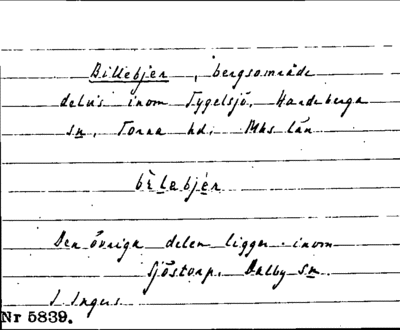 Billebjer, bergsområde
delvis inom Fygelsjö, Hardeberga
sn, Torna hd; Mhs län
bìlebjér
Den övriga delen ligger inom
Sjöstorp, Dalby sn.
I. Ingers
Nr 5839.